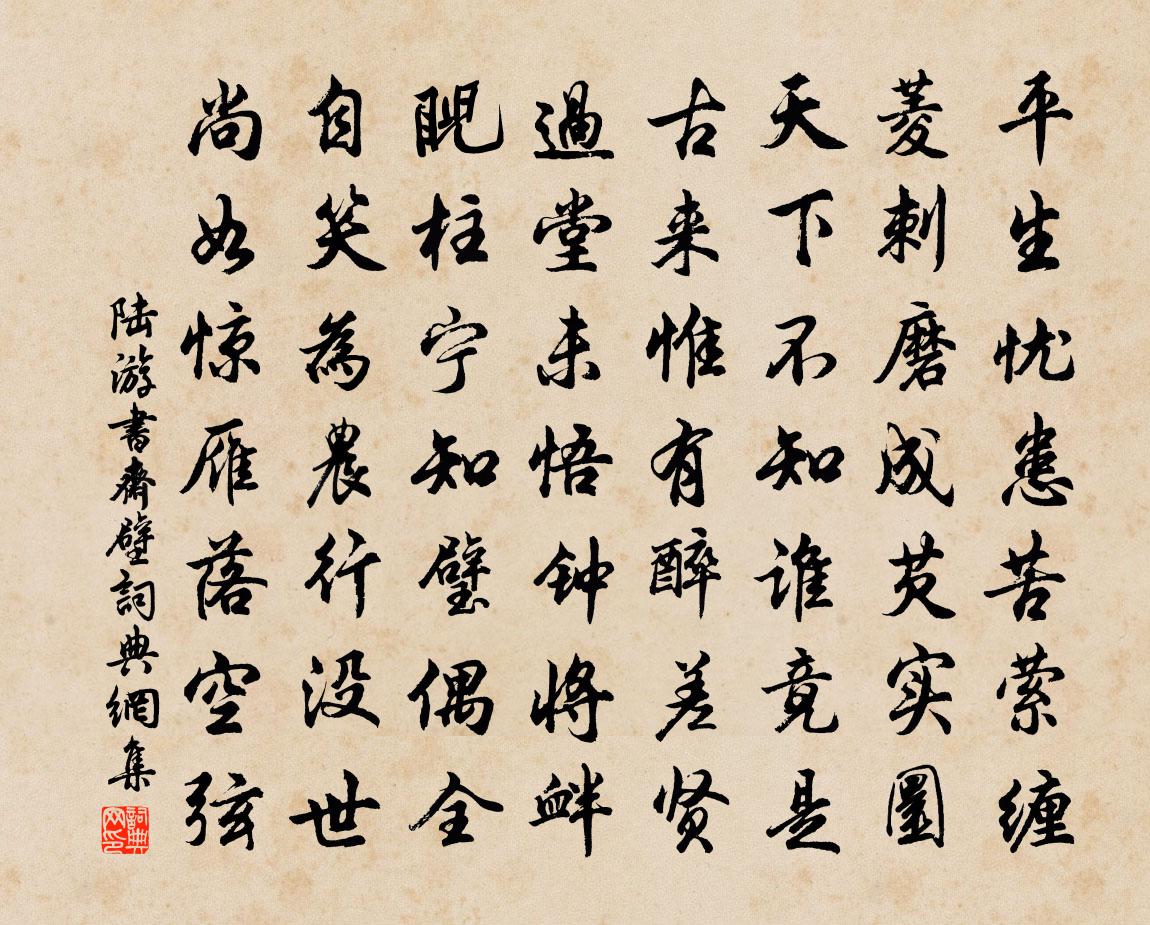 平生忧患苦萦缠
菱刺磨成芡实圓
天下不知谁竟是
古来惟有醉差贤
過堂未悟钟將衅
睨柱宁知璧偶全
自笑為農行没世
尚如惊雁落空弦
陆游書齋壁詞典網集
詞典网印